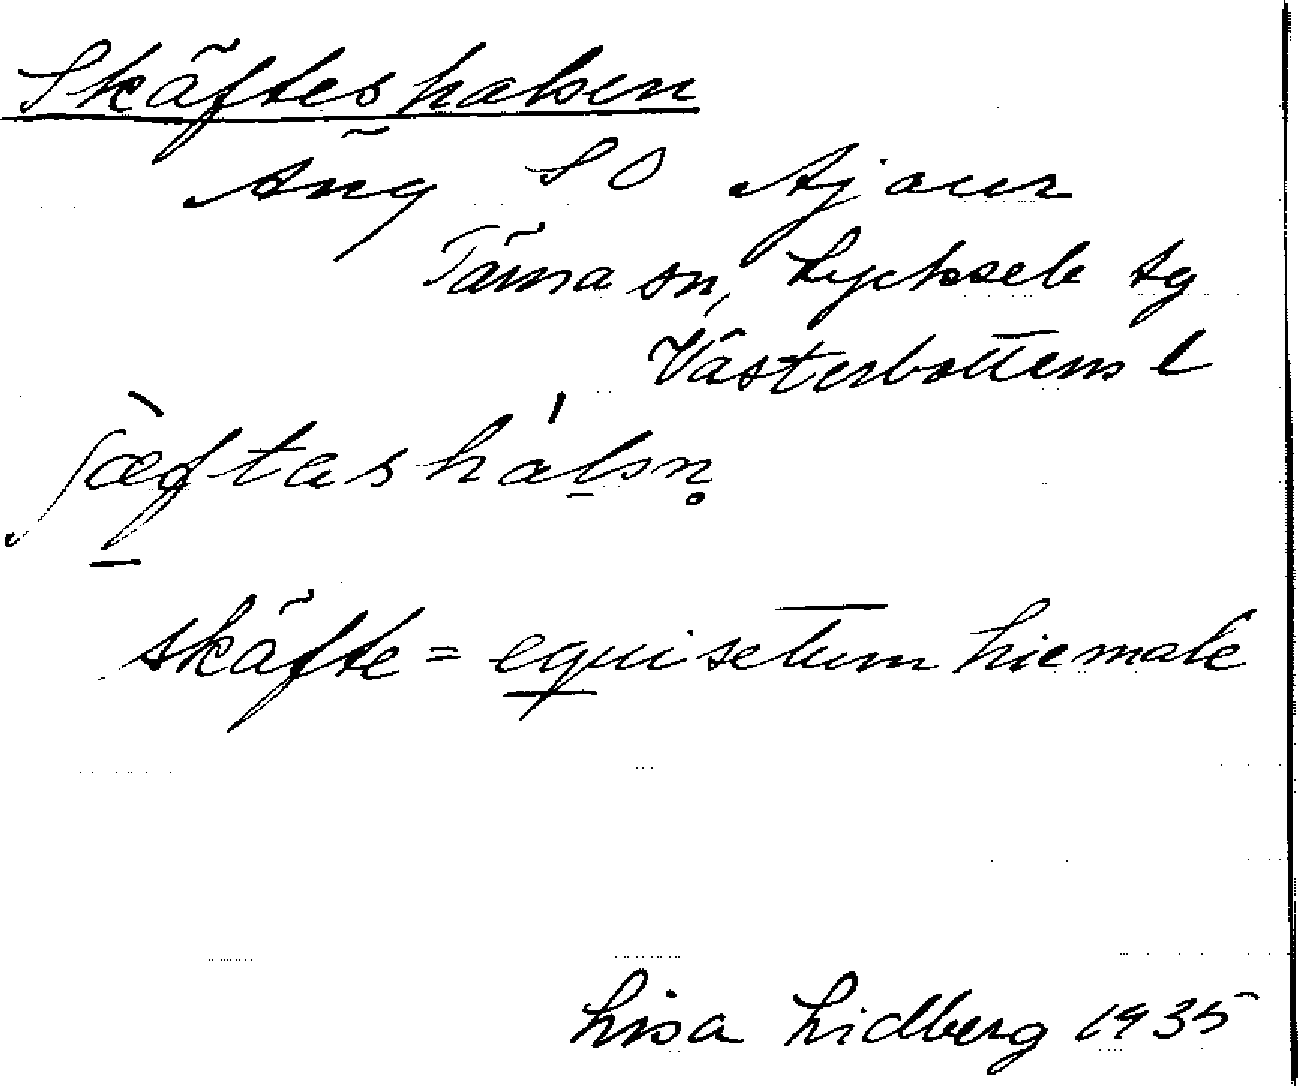 Skäfteshalsen
Äng SO Ajaur
Tärna sn, Lycksele tg
Västerbottens l
ʃæftashalsn̥
skäfte = equisetum hiemale
Lisa Lidberg 1935